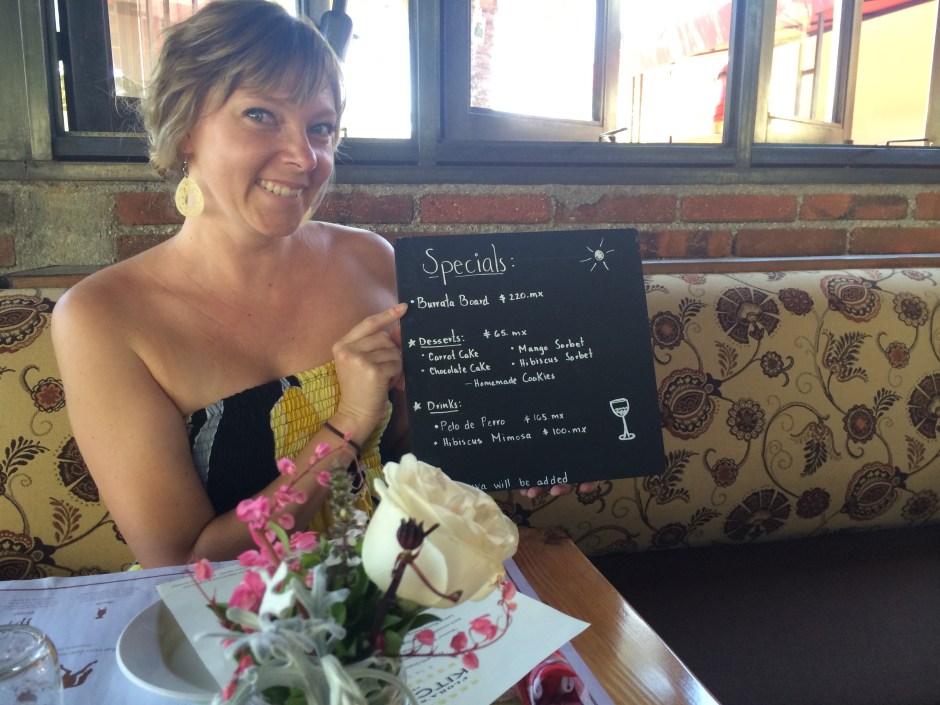 Specials:
• Burrata Board $220.mx
★ Desserts: $65.mx
• Carrot Cake • Mango Sorbet
• Chocolate Cake • Hibiscus Sorbet
- Homemade Cookies
★ Drinks:
• Pelo de Perro $165.mx
• Hibiscus Mimosa $100.mx
will be added
FLORA
KITC